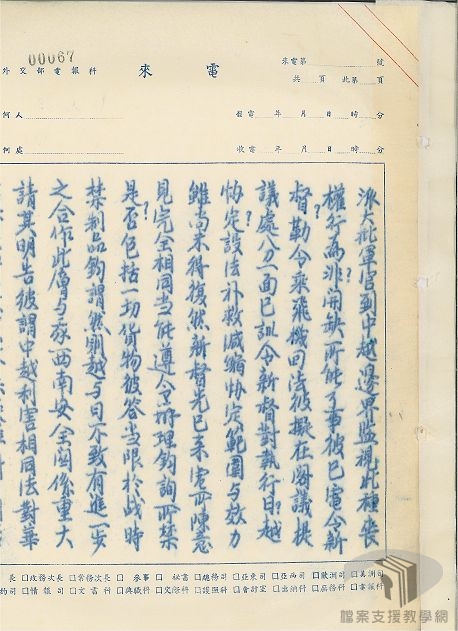 00067
外交部電報科
來電
來電第 號
共 頁 此第 頁
何人
發電 年 月 日 時 分
何處
收電 年 月 日 時 分
派大批軍官到中越邊界監視此種喪
權行為非開缺所能了事彼已電令新
督勒令乘飛機回法彼擬在閣議提
議處分一面已訓令新督對執行日越
協定設法補救減縮協定範圍與效力
雖尚未得復然新督先已來電所陳意
見完全相同當能遵令辦理鈞詢所禁
是否包括一切貨物彼答當限於戰時
禁制品鈞謂然則越與日不致有進一步
之合作此層與敝西南安全關係重大
請其明告彼謂中越利害相同法對華
美洲司 歐洲司 亞西司 亞東司 總務司 秘書 參事 常務次長 政務次長
電報科 庶務科 出納科 會計室 護照科 交際科 典職科 文書科 情報司
檔案支援教學網